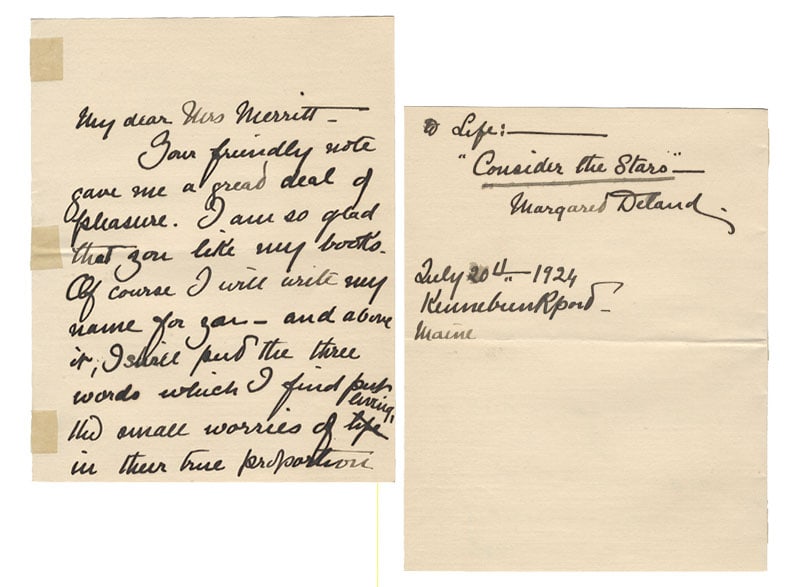 My dear Mrs Merritt —
Your friendly note
gave me a great deal of
pleasure. I am so glad
that you like my books.
Of course I will write my
name for you — and above
it, I will put the three
words which I find put
living,
the small worries of life
in their true proportion
to Life: —
"Consider the Stars" —
Margaret Deland.
July 20th — 1924
Kennebunkport —
Maine